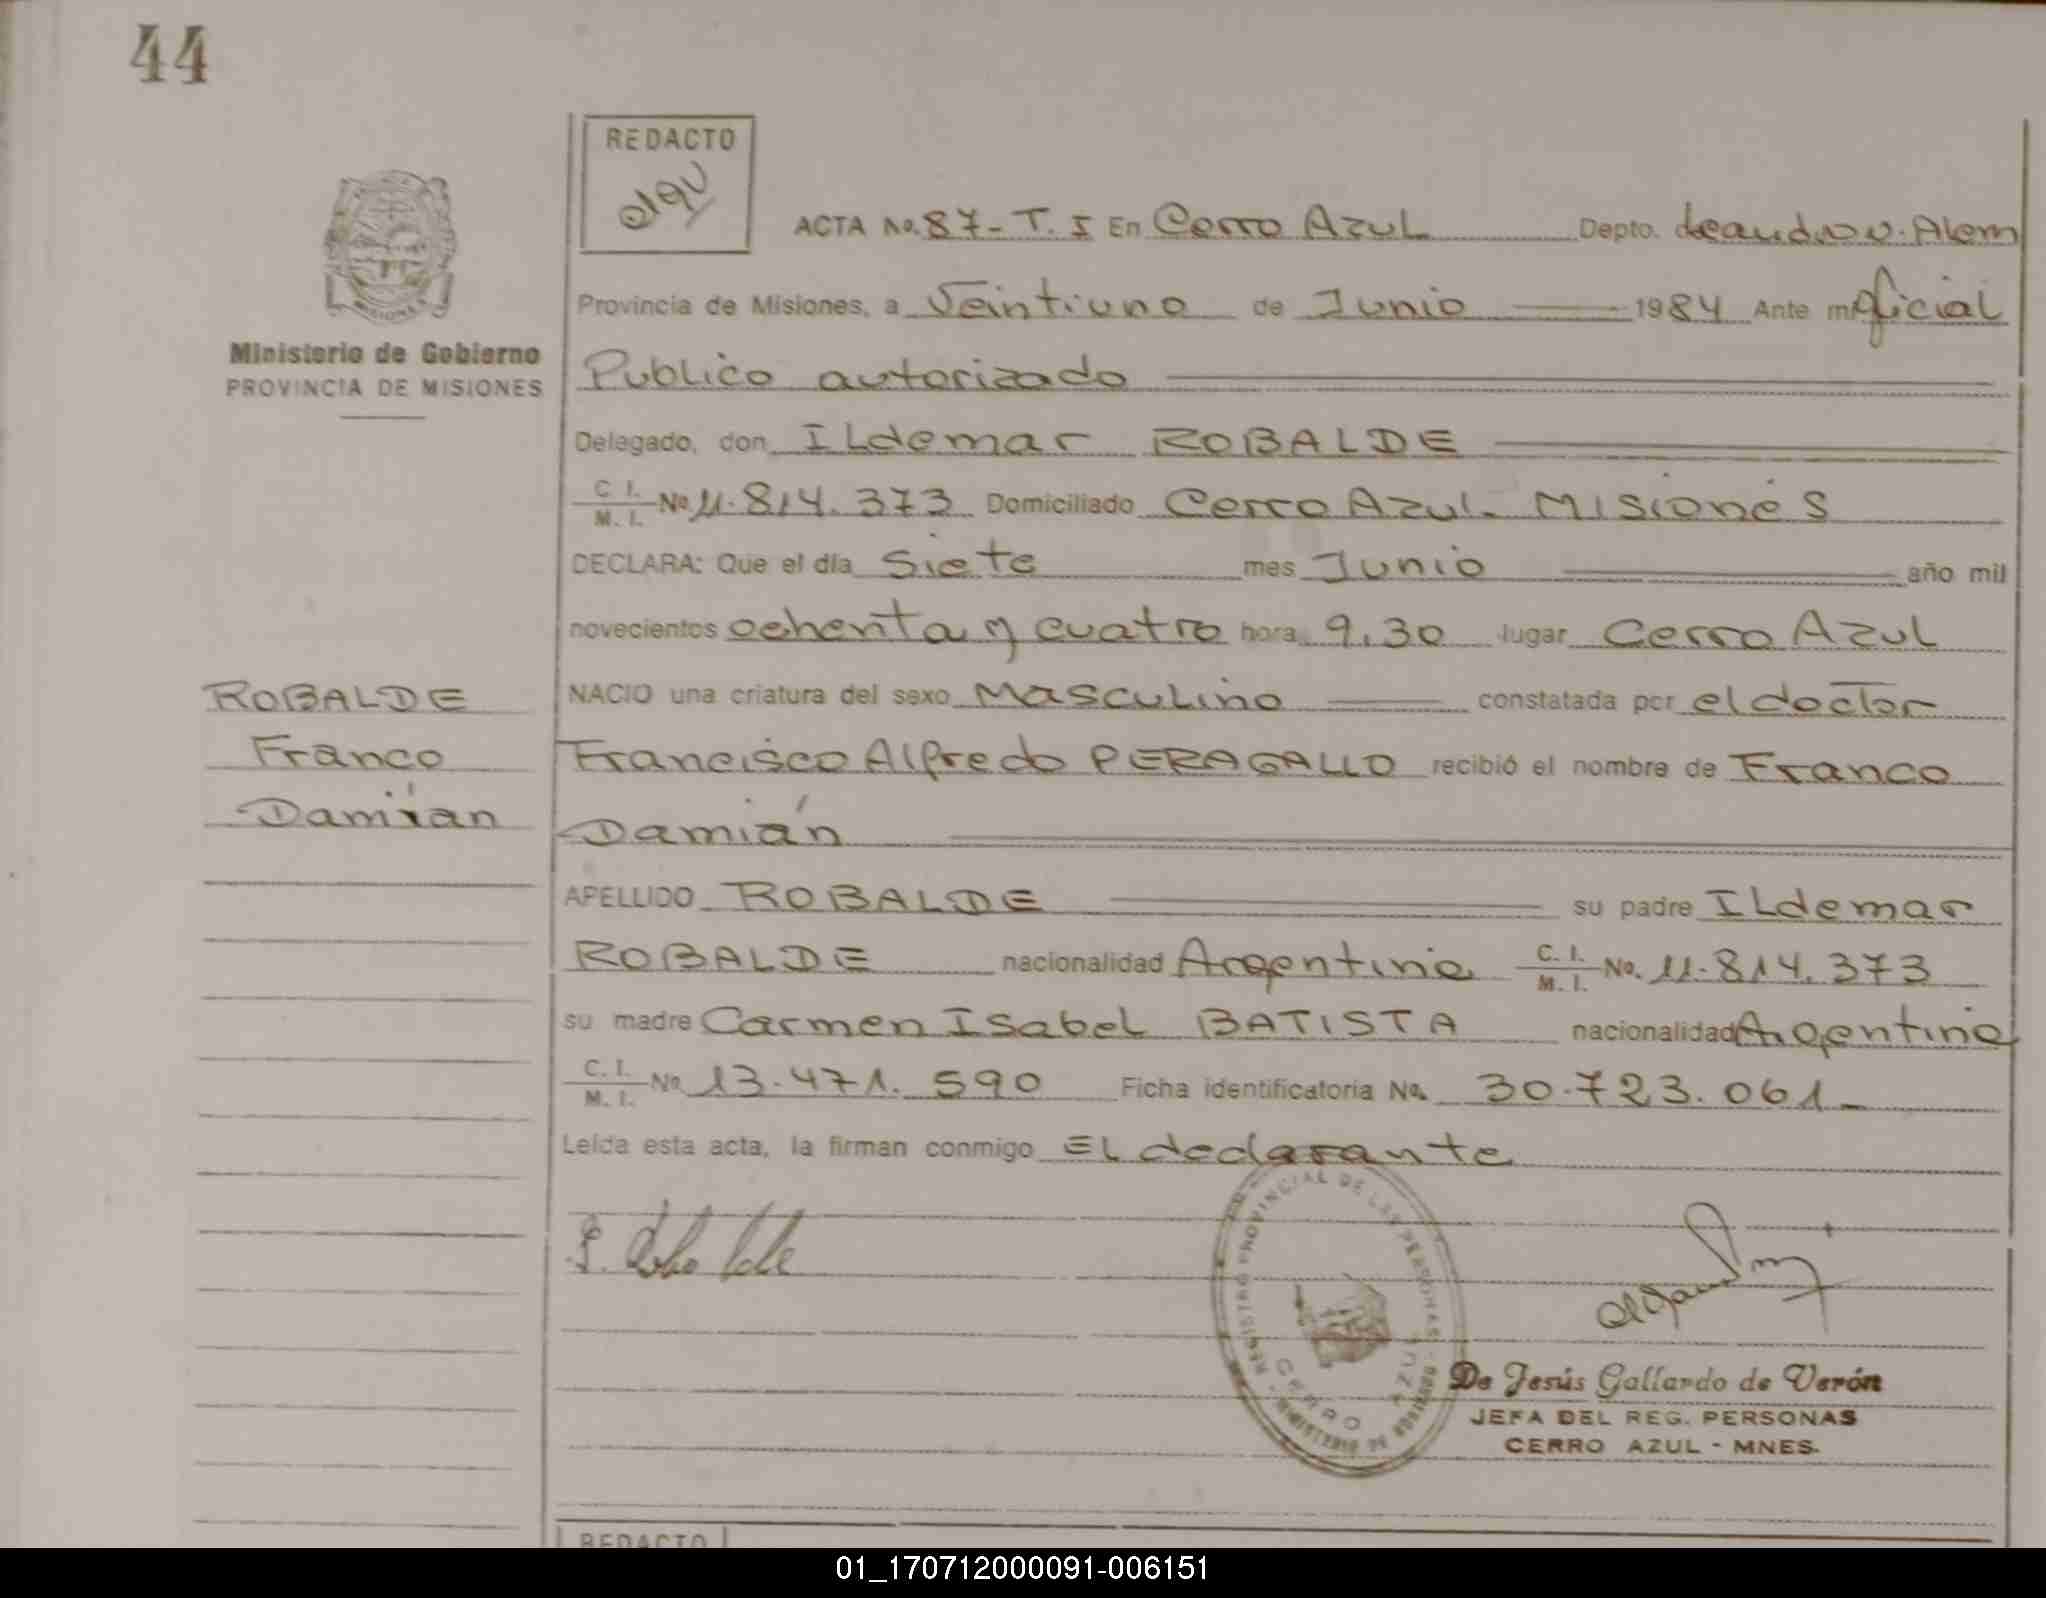 44
REDACTO
ACTA No. 87-T. I En Cerro Azul Depto. Leandro N. Alem
Provincia de Misiones, a Veintiuno de Junio 1984 Ante mi Oficial
Ministerio de Gobierno
PROVINCIA DE MISIONES
Publico autorizado
Delegado, don ILdemar ROBALDE
C. I. M. I. No. 11.814.373 Domiciliado Cerro Azul. Misiones
DECLARA: Que el día Siete mes Junio año mil
novecientos ochenta y cuatro hora 9.30 lugar Cerro Azul
ROBALDE
NACIO una criatura del sexo Masculino constatada por el doctor
Franco
Francisco Alfredo PERAGALLO recibió el nombre de Franco
Damián
Damián
APELLIDO ROBALDE su padre ILdemar
ROBALDE nacionalidad Argentina C. I. M. I. No. 11.814.373
su madre Carmen Isabel BATISTA nacionalidad Argentina
C. I. M. I. No 13.471.590 Ficha identificatoria No. 30.723.061-
Leída esta acta, la firman conmigo EL declarante
REGISTRO PROVINCIAL DE LAS PERSONAS
CERRO AZUL
De Jesús Gallardo de Verón
JEFA DEL REG. PERSONAS
CERRO AZUL - MNES.
REDACTO
01_170712000091-006151